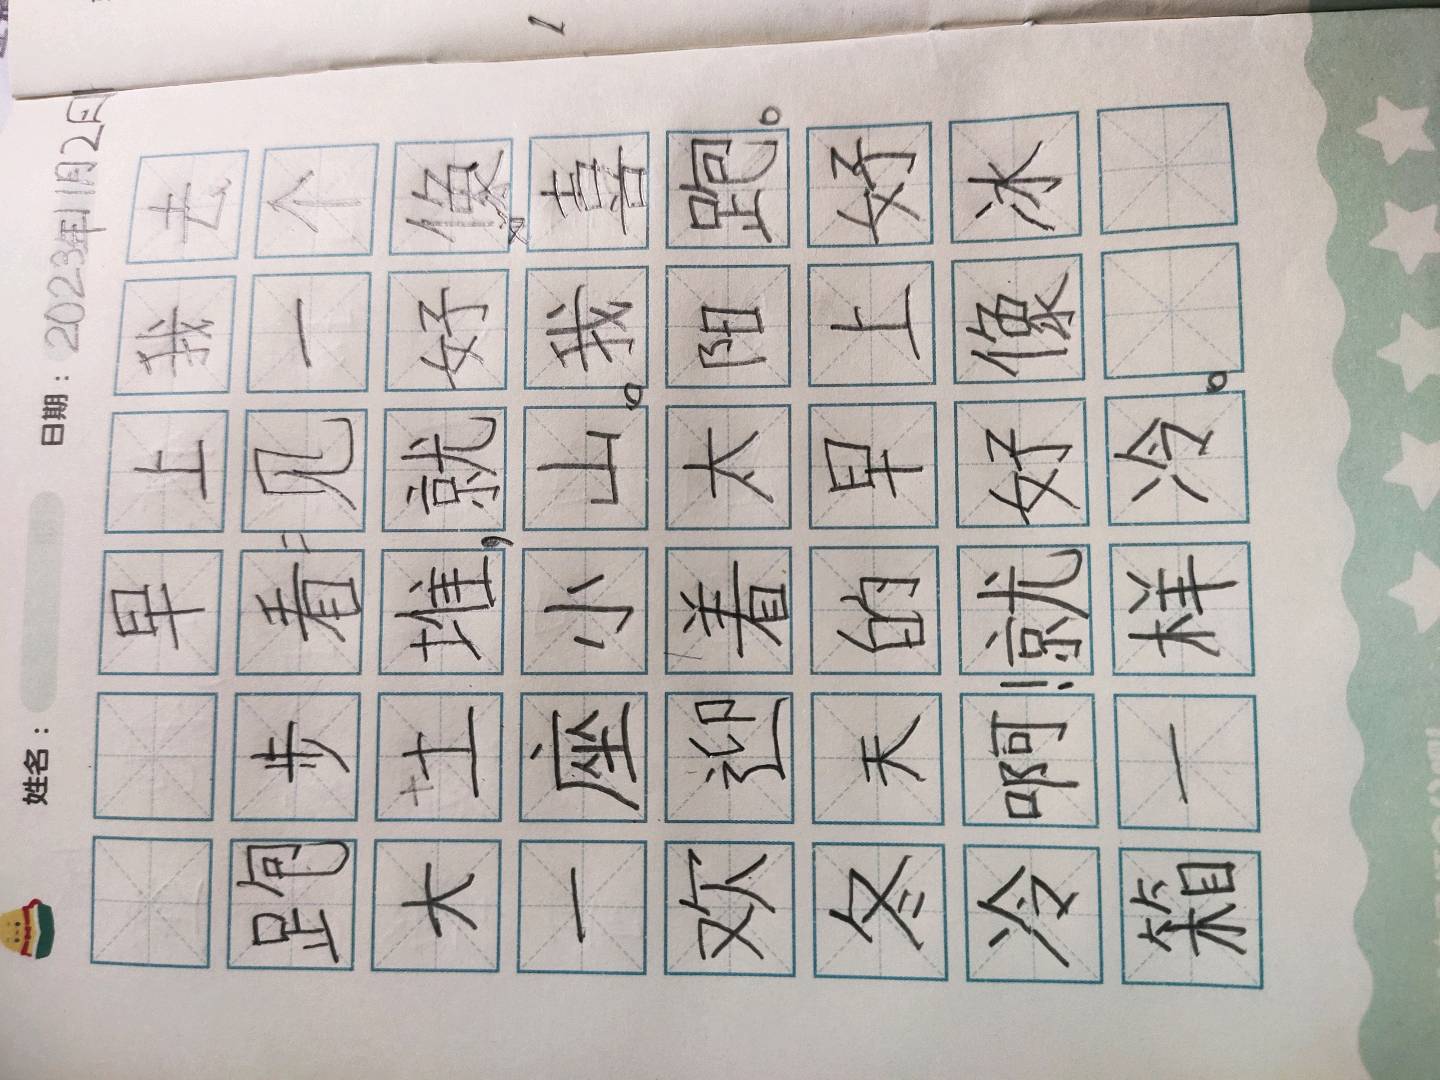 姓名： 日期：2023年11月2日
早上我去
跑步看见一个
大土堆，就好像
一座小山。我喜
欢迎着太阳跑。
冬天的早上好
冷啊！就好像冰
箱一样冷。